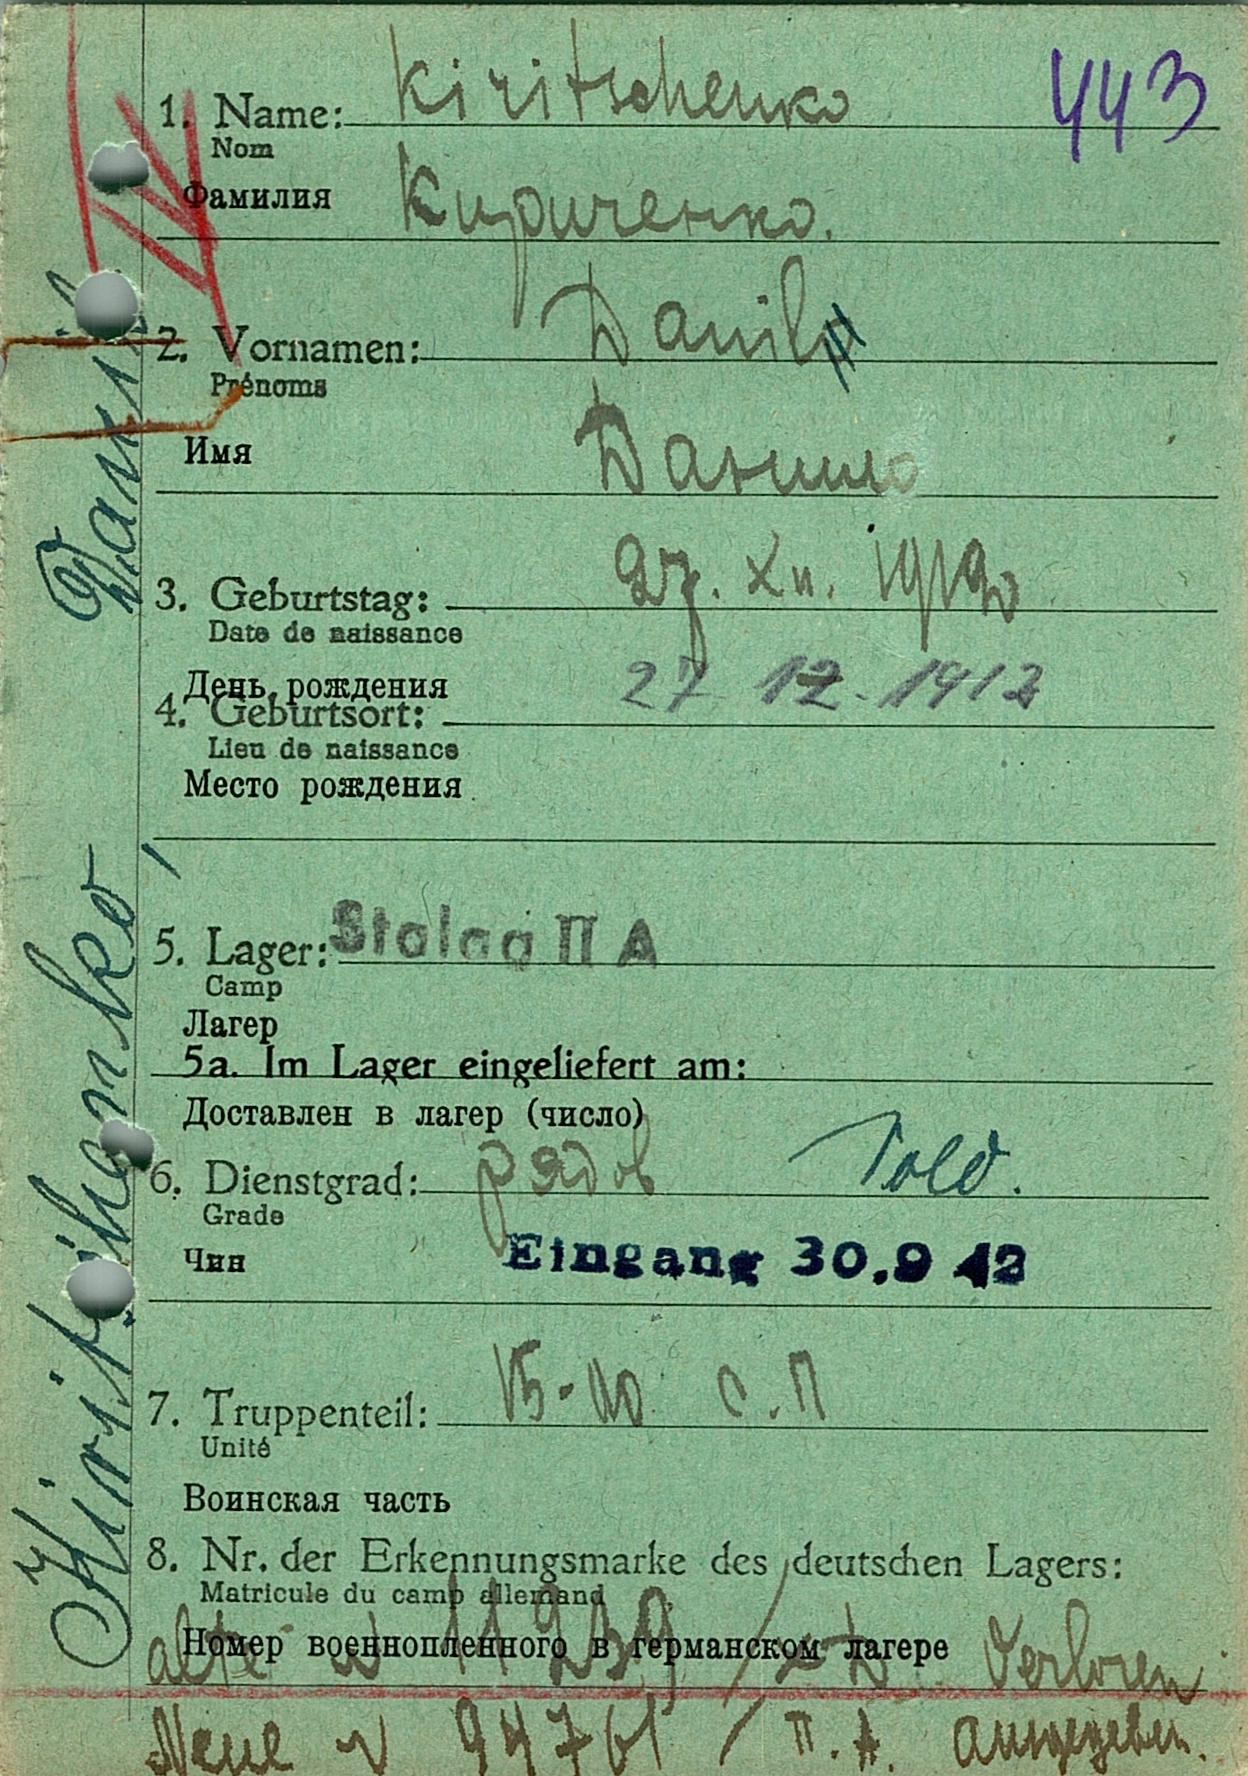 1. Name: Kiritschenko 443
Nom
Фамилия Кириченко.
2. Vornamen: Danil
Prénoms
Имя Данило
3. Geburtstag: 27. XII. 1912
Date de naissance
День рождения 27 12. 1912
4. Geburtsort:
Lieu de naissance
Место рождения
5. Lager: Stalag II A
Camp
Лагер
5a. Im Lager eingeliefert am:
Доставлен в лагер (число)
6. Dienstgrad: рядов Sold.
Grade
Чин Eingang 30.9 42
7. Truppenteil: с.п
Unité
Воинская часть
8. Nr. der Erkennungsmarke des deutschen Lagers:
Matricule du camp allemand
Номер военнопленного в германском лагере
alte N 11239 / Verloren
Neue N 94761 / II. A.
Kiritschenko, Daniil